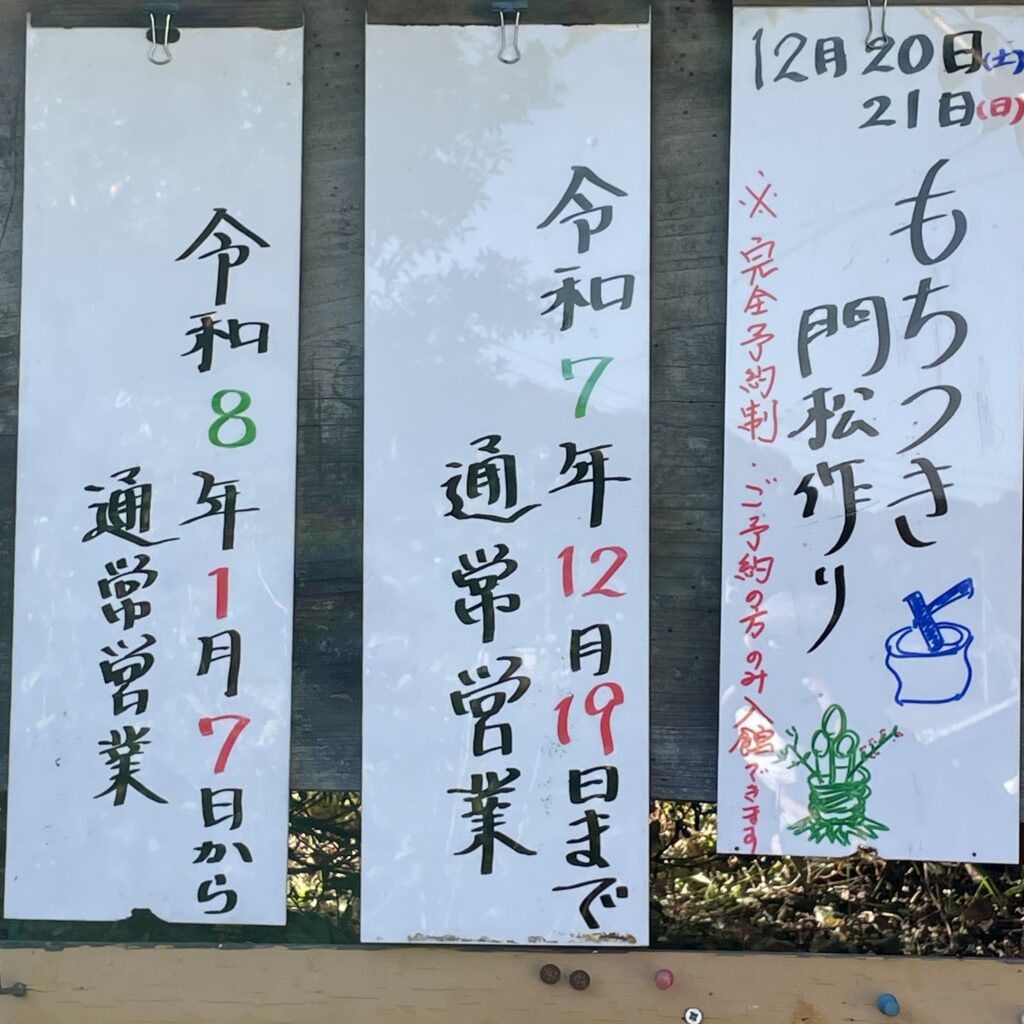 12月20日(土)
21日(日)
もちつき
門松作り
※完全予約制・ご予約の方のみ入館できます
令和7年12月19日まで
通常営業
令和8年1月7日から
通常営業